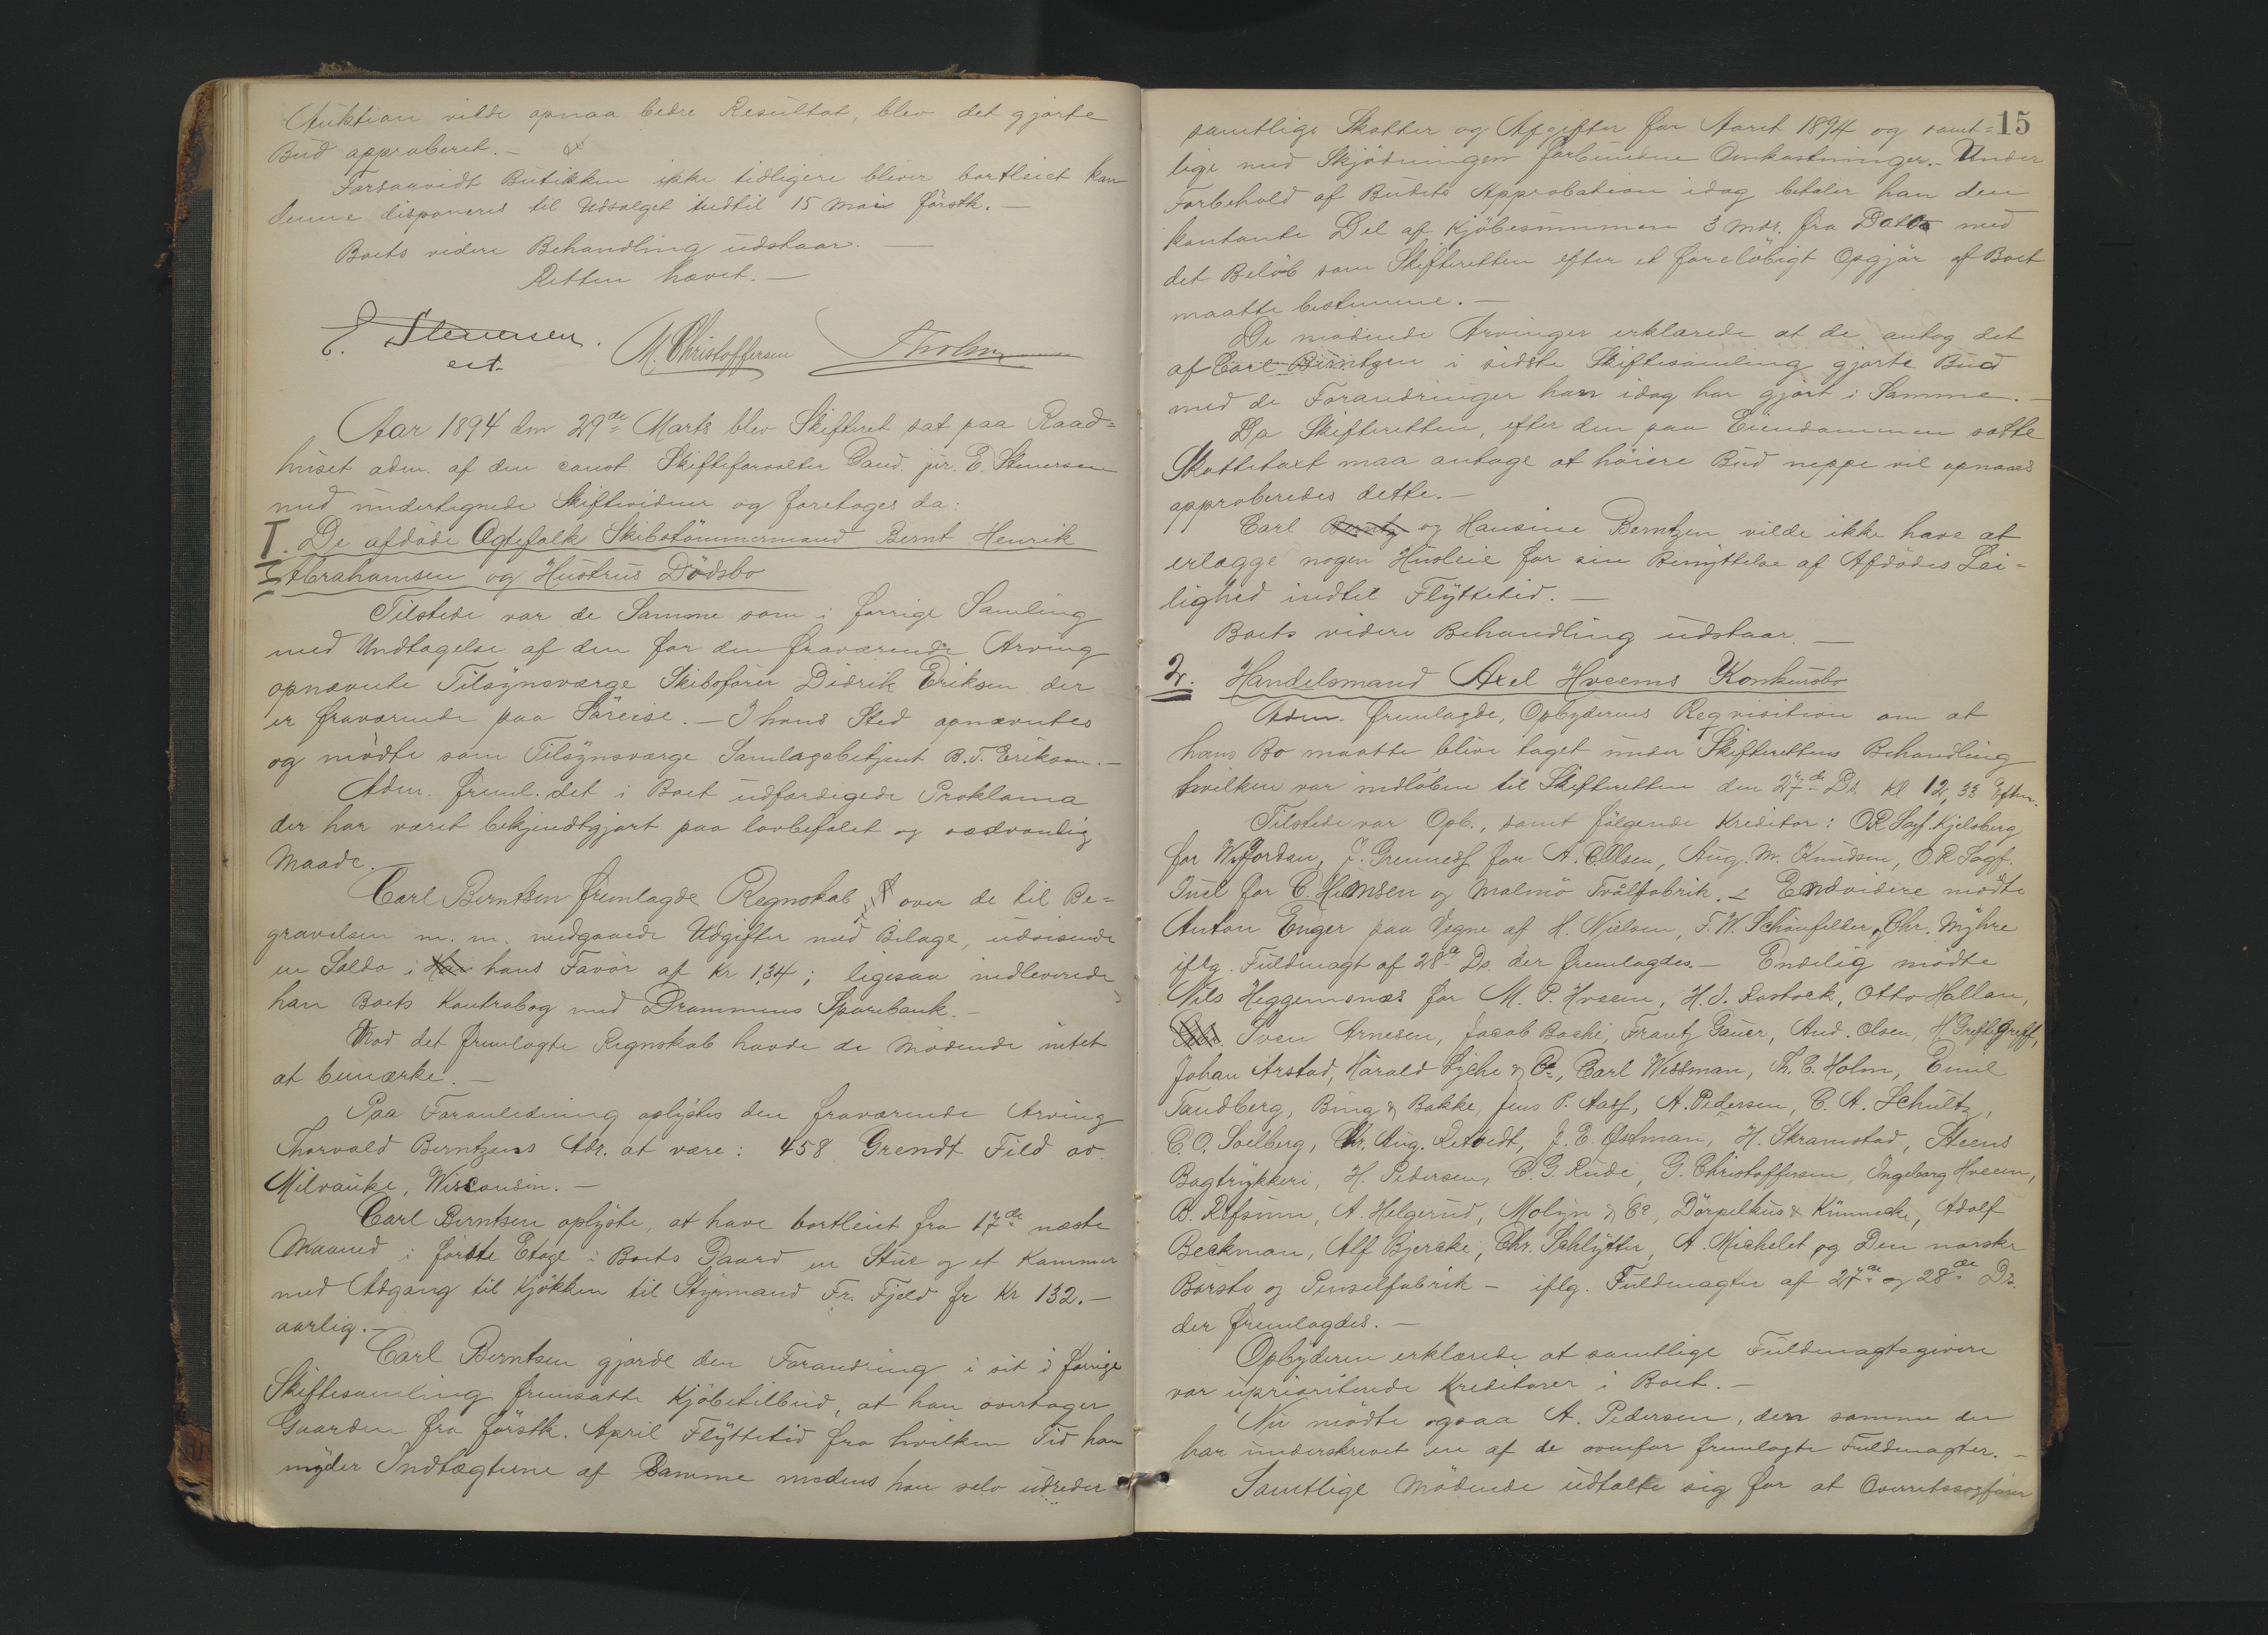 Auktion vilde opnaa bedre Resultat, blev det gjorte
Bud approberet.-
Forsaavidt Butikken ikke tidligere bliver bortleiet kan
denne disponeres til Udsalget indtil 15 Mai förstk.-
Boets videre Behandling udstaar.-
Retten hævet.-
E. Stenersen. M. Christoffersen
cst.
Aar 1894 den 29de Marts blev Skifteret sat paa Raad=
huset adm. af den const. Skifteforvalter Cand. jur. E. Stenersen
med undertegnede Skiftevidner og foretoges da:
I. De afdöde Ægtefolk Skibstömmermand Bernt Henrik
Abrahamsen og Hustrus Dödsbo
Tilstede var de Samme som i forrige Samling
med Undtagelse af den for den fraværende Arving
opnævnte Tilsynsværge Skibsförer Didrik Eriksen der
er fraværende paa Söreise.- I hans Sted opnævntes
og mödte som Tilsynsværge Samlagsbetjent B. T. Eriksen.-
Adm. freml. det i Boet udfærdigede Proklama
der har været bekjendtgjort paa lovbefalet og sædvanlig
Maade.-
Carl Berntsen fremlagde Regnskab over de til Be=
gravelsen m. m. medgaaede Udgifter med Bilage, udvisende
en Saldo i hans Favör af Kr 1,34; ligesaa indleverede
han Boets Kontrabog med Drammens Sparebank.-
Mod det fremlagte Regnskab havde de Mödende intet
at bemærke.-
Paa Foranledning oplystes den fraværende Arving
Thorvald Berntzens Adr. at være: 458 Grendt Fild av.
Milvauke, Wisconsin.-
Carl Berntsen oplyste, at have bortleiet fra 17de næste
Maaned i förste Etage i Boets Gaard en Stue og et Kammer
med Adgang til Kjökken til Styrmand Fr. Fjeld for Kr 132.-
aarlig.-
Carl Berntsen gjorde den Forandring i sit i forrige
Skiftesamling fremsatte Kjöbetilbud, at han overtager
Gaarden fra förstk. April Flyttetid fra hvilken Tid han
nyder Indtægterne af Samme medens han selv udreder
15
samtlige Skatter og Afgifter for Aaret 1894 og samt=
lige med Skjödningen forbundne Omkostninger.- Under
Forbehold af Budets Approbation idag betaler han den
kontante Del af Kjöbesummen 3 Mdr. fra Dato med
det Belöb som Skifteretten efter et foreløbigt Opgjör af Boet
maatte bestemme.-
De mödende Arvinger erklærede at de antog det
af Carl Berntzen i sidste Skiftesamling gjorte Bud
med de Forandringer han idag har gjort i Samme.-
Da Skifteretten, efter den paa Eiendommen satte
Skattetaxt maa antage at höiere Bud neppe vil opnaaes
approberedes dette.-
Carl og Hansine Berntzen vilde ikke have at
erlægge nogen Husleie for sin Benyttelse af Afdödes Lei=
lighed indtil Flyttetid.-
Boets videre Behandling udstaar.-
2. Handelsmand Axel Hveems Konkursbo
Adm. fremlagde, Opbyderens Reqvisition om at
hans Bo maatte blive taget under Skifterettens Behandling
hvilken var indlöben til Skifteretten den 27de Ds. Kl 12,33 Efterm.
Tilstede var Opb., samt fölgende Kreditor: O.R.Sagf. Kjelsberg
for W. Jordan, for A. C. Olsen, Aug. M. Knudsen, O.R. Sagf.
Juel for C. Hemsen og Malmö Tvålfabrik.- Endvidere mödte
Anton Enger paa Vegne af H. Nielsen, F. W. Schönfelder, Chr. Myhre
iflg. Fuldmagt af 28de Ds. der fremlagdes.- Endelig mödte
Nils Heggemsnæs for M. P. Hveem, H. J. Rostock, Otto Hallan,
Sven Arnesen, Jacob Bache, Frantz Gauer, And. Olsen,
Johan Arstad, Harald Lyche & Co, Carl Wissman, Th. C. Holm, Emil
Tandberg, Bing & Bakke, Jens P. Aass, A. Pedersen, C. A. Schultz,
C. O. Solberg, Chr. Aug. Retvedt, J. E. Östman, H. Skramstad, Steens
Bogtrykkeri, H. Pedersen, C. G. Rude, G. Christoffersen, Ingeborg Hveem,
B. Refsum, A. Helgerud, Molyn & Co, Dörpelkus & Künnecke, Adolf
Beckman, Alf Bjercke, Chr. Schlytter, A. Michelet og Den norske
Börste og Penselfabrik - iflg. Fuldmagter af 27de og 28de Ds.
der fremlagdes.-
Opbyderen erklærede at samtlige Fuldmagtsgivere
var uprioriterede Kreditorer i Boet.-
Nu mödte ogsaa A. Pedersen, den samme der
har underskrevet en af de ovenfor fremlagte Fuldmagter.-
Samtlige Mödende udtalte sig for at Overretssagförer